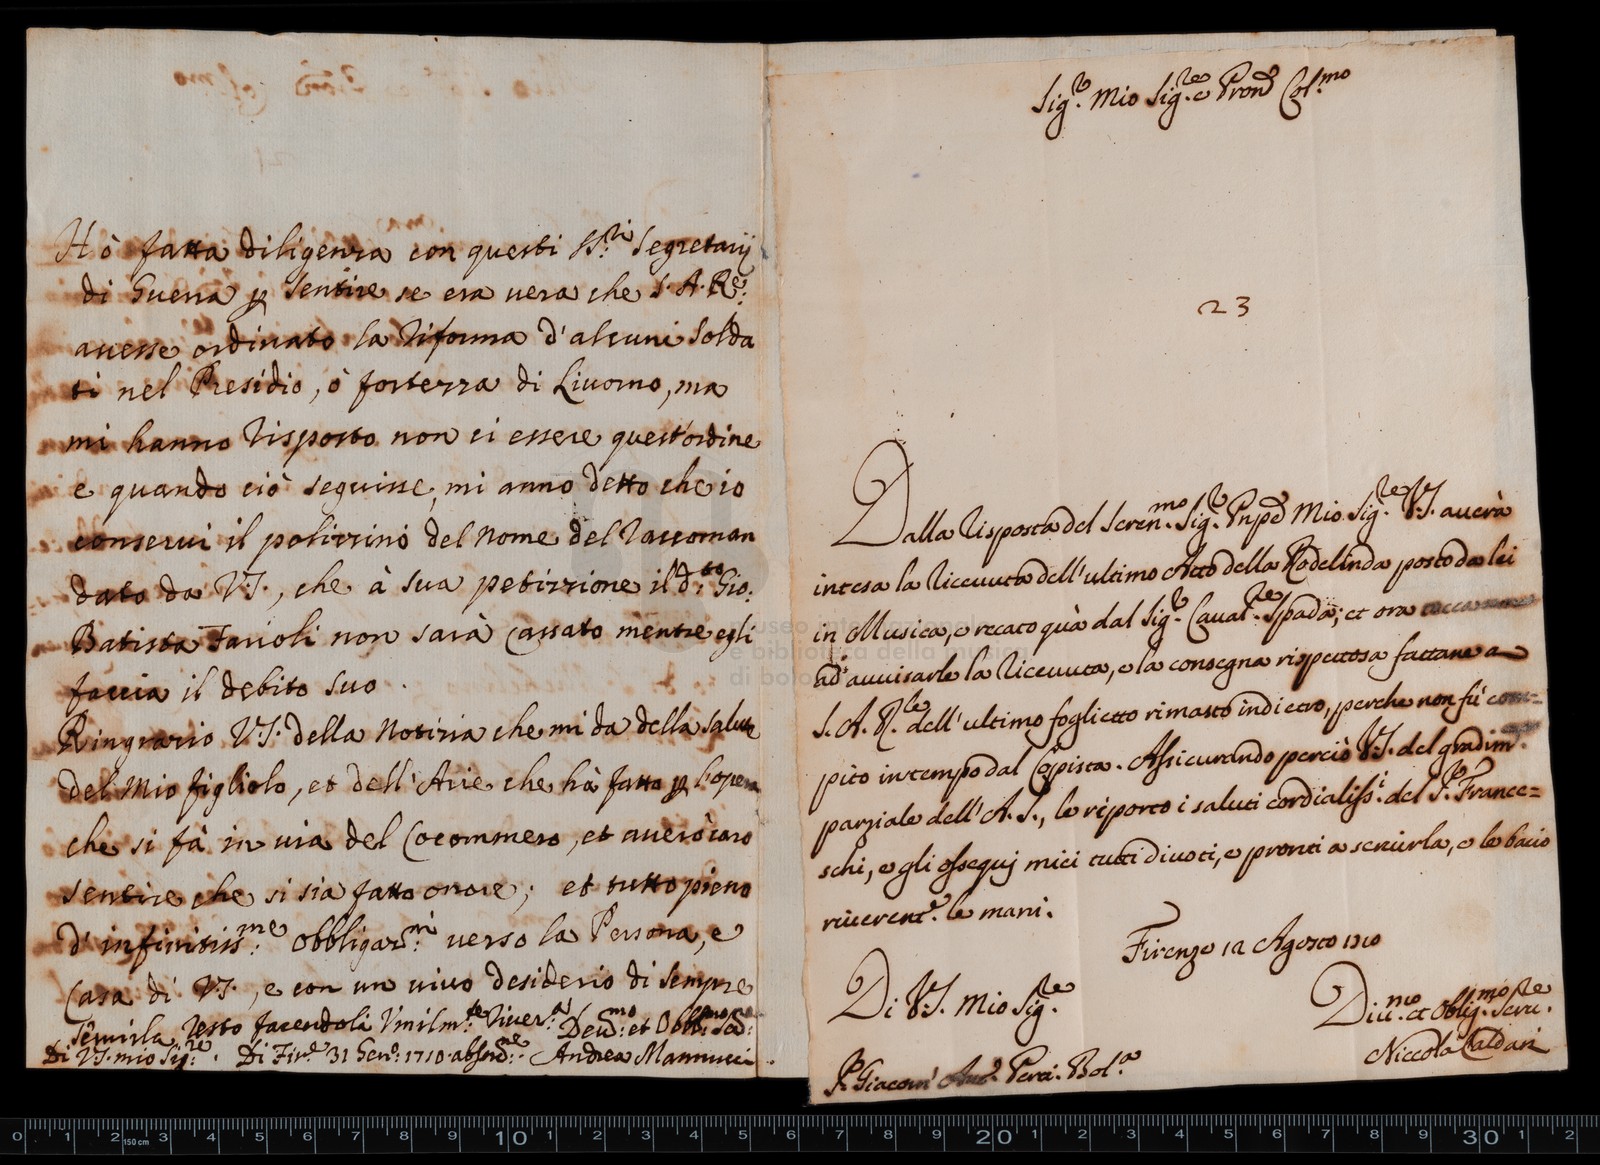 Hò fatta diligenza con questi SS.ri Segretarij
di Guerra p sentire se era vera che S. A. Re:
auesse ordinato la Riforma d'alcuni Solda
ti nel Presidio, ò fortezza di Liuorno, ma
mi hanno risposto non ci essere quest'ordine
e quando ciò seguisse, mi anno detto che io
conserui il polizzino del nome del Raccoman
dato da V.S., che à sua petizzione il d.to Gio:
Batista Farioli non sarà Cassato mentre egli
faccia il debito suo.
Ringrazio V.S. della Notizia che mi da della salute
del Mio figliolo, et dell'Arie che hà fatto p l'opera
che si fà in via del Cocommero, et auerò caro
sentire che si sia fatto onore; et tutto pieno
d'infinitiss:me obbligaz:ni verso la Persona, e
Casa di V.S., e con un uiuo desiderio di sempre
Seruirla resto facendoli Vmilm:te Riuer:
Deu:mo et Obb:mo Se:
Di V.S. mio Sig:re. Di Fir:e 31 Gen: 1710 Andrea Mannucci
Sig.e Mio Sig.re e Pron Col.mo
23
Dalla risposta del Seren.mo Sig.e Pnpe Mio Sig.re V.S. auerà
intesa la riceuuta dell'ultimo Atto della Rodelinda posto da lei
in Musica, e recato quà dal Sig.e Caual.re Spada; et ora
ad auuisarle la riceuuta, e la consegna rispettosa fattane a
S. A. R.le dell'ultimo foglietto rimasto indietro, perche non fù com=
pito in tempo dal Copista. Assicurando perciò V.S. del gradim.
parziale dell'A. S., le riporto i saluti cordialiss.i del S.r France=
schi, e gli ossequj miei tutti diuoti, e pronti a seruirla, e le bacio
riuerent.e le mani.
Firenze 12 Agosto 1710
Di V.S. Mio Sig.re
Diu.mo et Oblig.mo Seru.re
Niccolà Caldari
P. Giacom' Ant. Perti. Bol.a
museo internazionale
e biblioteca della musica
di bologna